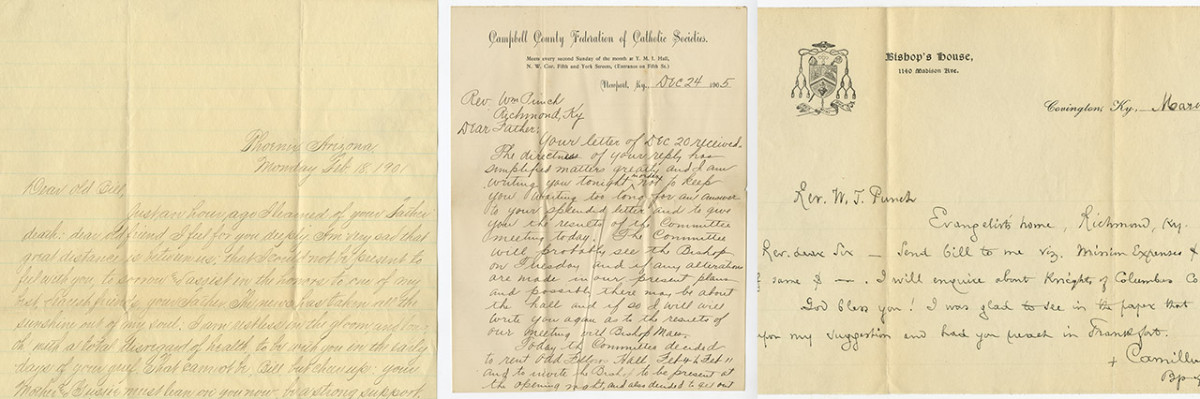 Phoenix Arizona
Monday Feb 18, 1901
Dear Old Bill,
Just an hour ago I learned of your Father's
death: dear old friend, I feel for you deeply. I'm very sad that
great distance is between us; that I could not be present to
feel with you, to sorrow & assist in the honors to one of my
best & truest friends your Father. The news has taken all the
sunshine out of my soul. I am restless in the gloom and
with a total disregard of health, to be with you in the early
days of your grief. That cannot be Bill but cheer up: your
Mother & Susie must lean on you now, be a strong support
Campbell County Federation of Catholic Societies.
Meets every second Sunday of the month at Y. M. I. Hall,
N. W. Cor. Fifth and York Streets, (Entrance on Fifth St.)
Newport, Ky., DEC 24 1905
Rev. Wm Punch
Richmond, Ky
Dear Father,
Your letter of DEC 20 received.
The directness of your reply has
simplified matters greatly and I am
writing you tonight in order not to keep
you waiting too long for an answer
to your splendid letter and to give
you the results of the Committee
meeting today. The Committee
will probably see the Bishop
on Tuesday and if any alterations
are made in our present plans
and possibly there may be about
the hall and if so I will will
write you again as to the results of
our meeting with Bishop Maes.
Today the Committee decided
to rent Odd Fellow Hall, Feb 4 to Feb 11
and to invite the Bishop to be present at
the opening night, and also decided to get out
Bishop's House,
1140 Madison Ave.
Covington, Ky.,
Rev. W. T. Punch
Evangelist's home, Richmond, Ky.
Rev. dear Sir — Send bill to me viz. Mission Expenses &
same $ —. I will enquire about Knights of Columbus Co
God bless you! I was glad to see in the paper that
you my suggestion and had you preach in Frankfort.
+ Camillus
Bp